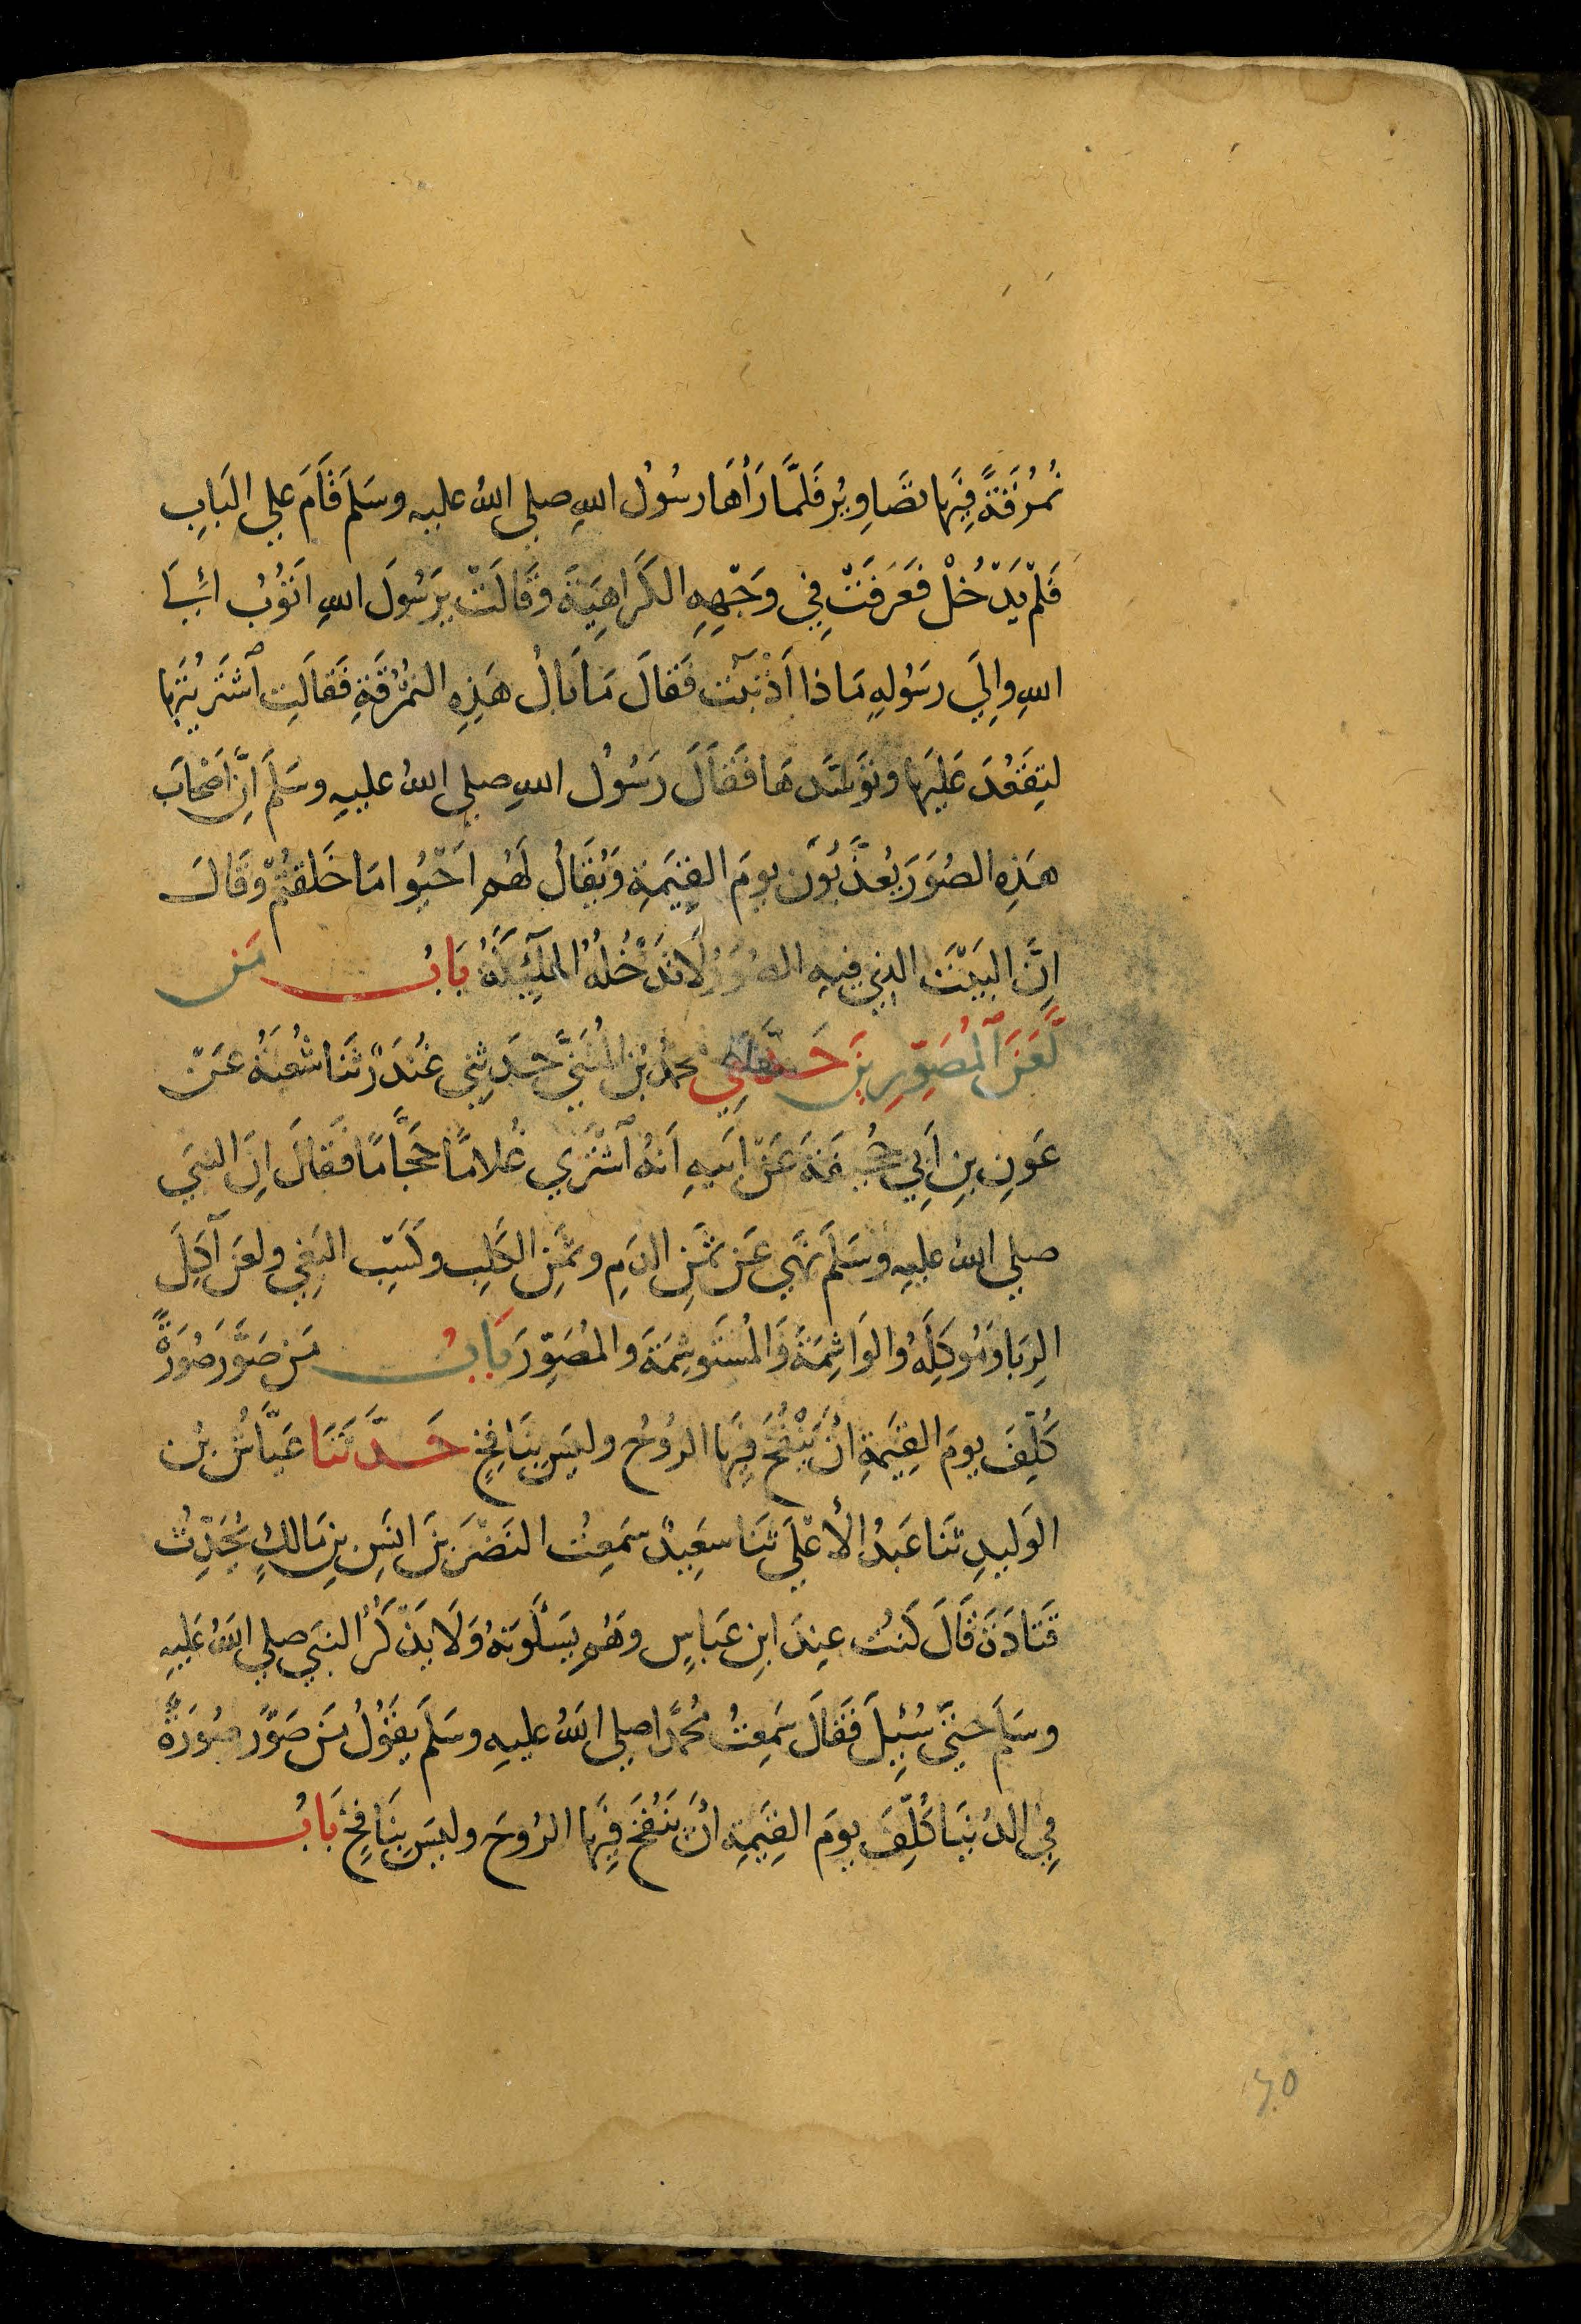 نُمْرُقَةً فِيْهَا تَصَاوِيْرُ فَلَمَّا رَأَهَا رسُوْلُ اللهِ صلي اللهُ عليهِ وسَلَمَ قَامَ علي البَابِ
فَلَمْ يَدْخُلْ فَعَرَفَتْ فِي وَجْهِهِ الكَرَاهِيَةَ وقَالَتْ يَرَسُوْلَ اللهِ اَتُوْبُ اِلَي
اللهِ وإِلَي رسُولِهِ مَاذا اَذْنَبْتُ فَقَالَ مَا بَالُ هَذِهِ النُمْرُقَةِ فَقَالَتِ اَشْتَرَيْتُهَا
لِتَقْعُدَ عَلَيْهَا وتَوَسَّدَهَا فَقَالَ رَسُوْل اللهِ صلي اللهُ عليهِ وسَلَمَ اِنَّ اَصْحَابَ
هَذِهِ الصُوَرِ يُعَذَّبُوْنَ يومَ القِيَمَةِ وَيُقَالُ لَهُمِ اَحْيُوا مَا خَلَقْتُمْ وقَالَ
اِنَّ البَيْتَ الذي فيهِ الصُوَرُ لَاتَدْخُلُهُ المَلَئِكَةُ بَابُ مَن
لَّعَنَ اَلْمُصَوِّرِيْنَ حَدَّثَنِي محمدُ بْنُ المُثَنَّي حَدَثَنِي غُنْدَرٌ ثَنَا شُعْبَةُ عَنْ
عَوْنِ بنِ اَبِي جُحَيْفَةَ عَنْ اَبِيهِ اَنَهُ اَشْتَرَي غُلامًا حَجَّامًا فَقَالَ اِنَ النبَي
صلي اللهُ عليهِ وسَلَمَ نَهَي عَنْ ثَمَنِ الدَمِ وثَمَنِ الكَلْبِ وكَسْبِ البَغِي ولعَنَ آكِلَ
الرِبَا ومُوْكِلَهُ والوَاشِمَةَ وَالمُسْتَوشِمَةَ والمُصَوِّرَ بَابُ مَنْ صَوَّرَ صُوْرَةً
كُلِّفَ يومَ القِيَمَةِ اَنْ يَنْفُخَ فِيْهَا الروُحَ وليسَ بِنَافِخٍ حَدَّثَنَا عَيَّاشُ بْن
الوَليدِ ثَنَا عَبْدُ الأَعْلَي ثَنَا سعِيْدٌ سَمِعْتُ النَضْرَ بْنَ انَسِ بنِ مَالكٍ يُحَدِّثُ
قَتَادَةَ قَالَ كُنْتُ عِندَ ابنِ عَبَاسٍ وَهُم يَسْأَلُونَهُ وَلَا يَذْكُرُ النبَي صلي اللهُ عَليهِ
وسَلَمَ حَتَّي سُئِلَ فَقَالَ سَمِعْتُ مُحَمَّدًا صلي اللهُ عليهِ وسَلَمَ يقُوْلُ مَنْ صَوَّرَ صُوْرَةً
فِي الدُنيَا كُلِّفَ يومَ القِيَمَةِ اَنْ يَنْفُخَ فِيْهَا الرُوحَ وليسَ بِنَافِخٍ بَابُ
٢٠٥